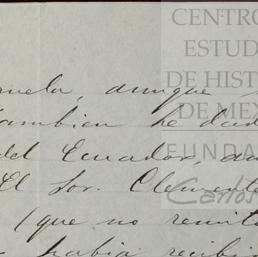 CENTRO
ESTUD
DE HIST
DE MÉX
FUNDA
Carlos
nuela, aunque
tambien he dad
del Ecuador, au
El Sor. Clemente
(que no remit
habia recibi